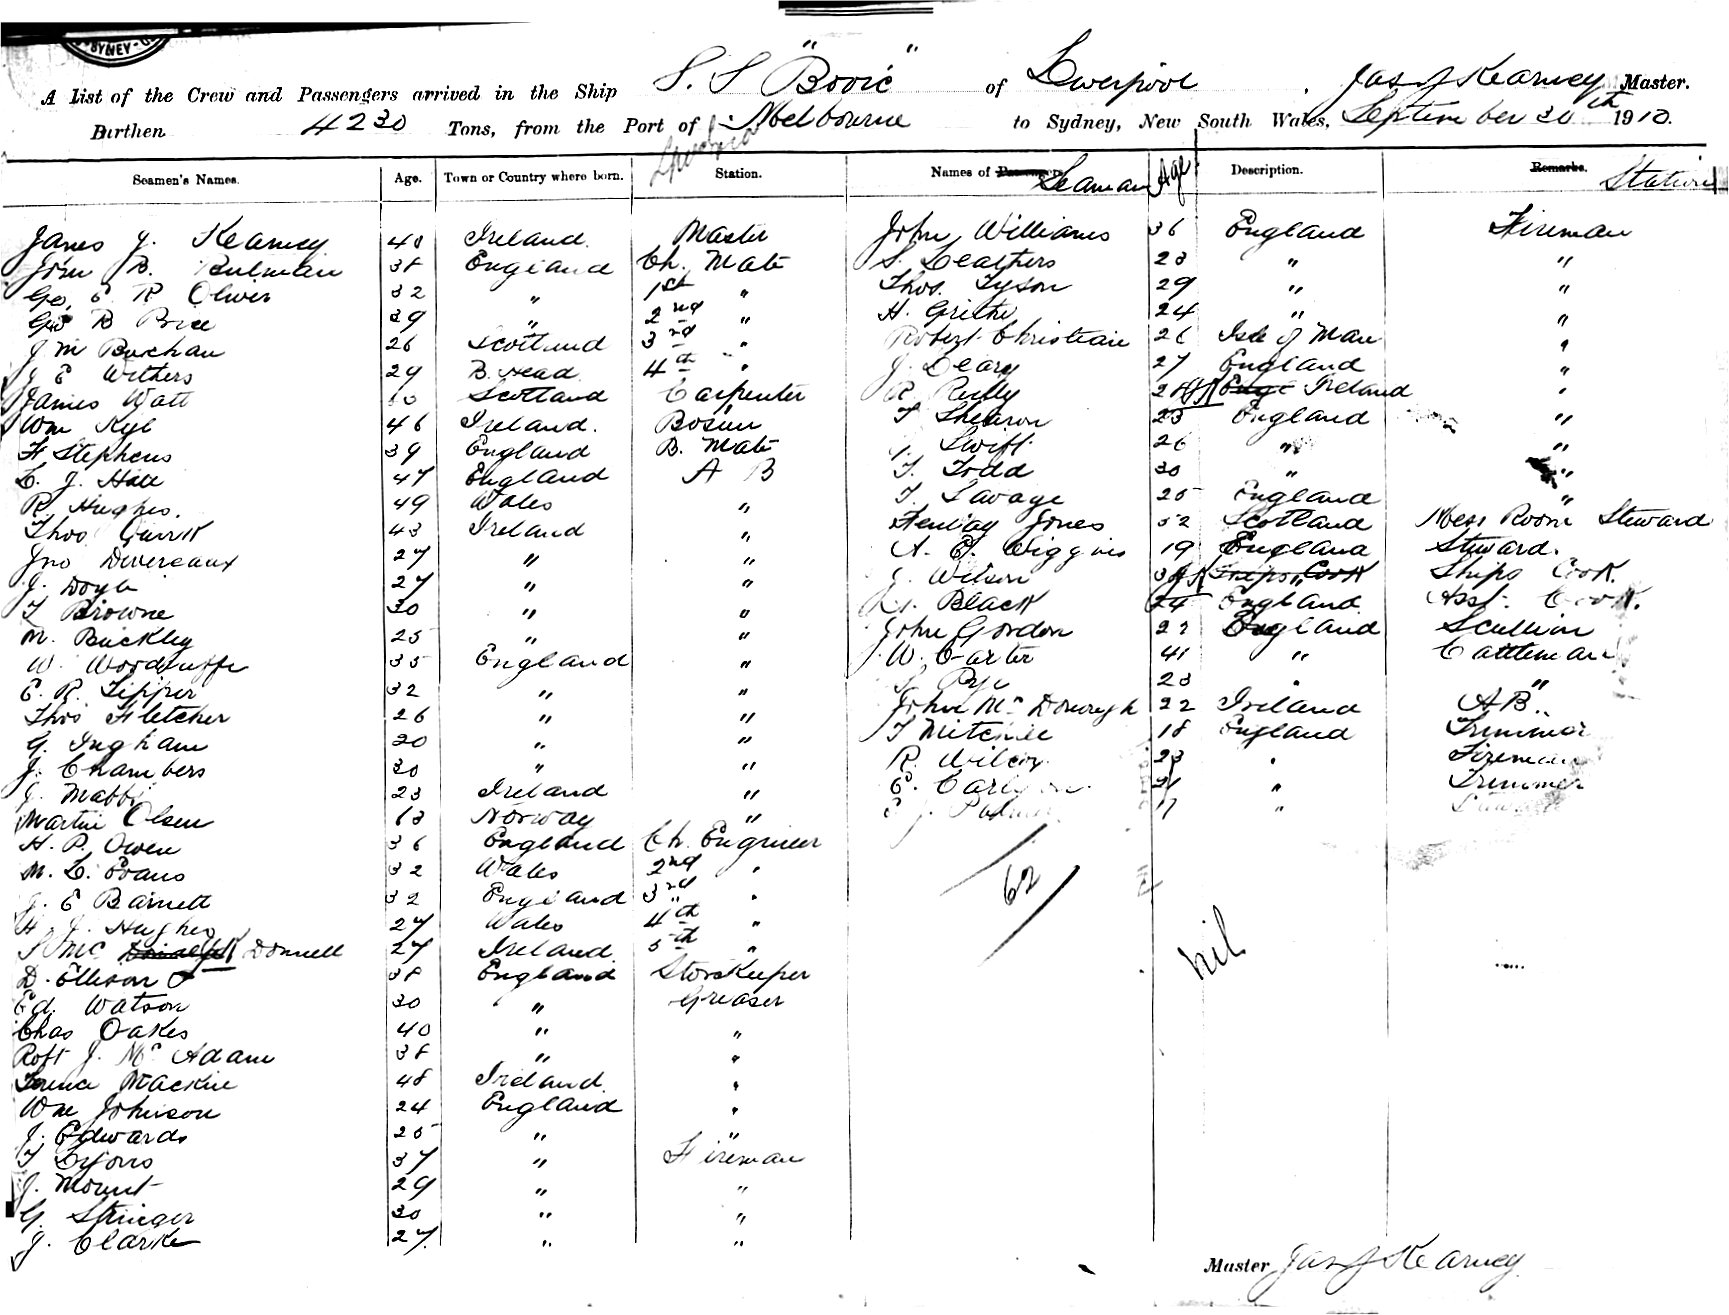 SYDNEY
A List of the Crew and Passengers arrived in the Ship S. S "Bovic" of Liverpool, Jas J Kearney Master.
Birthen 4230 Tons, from the Port of Melbourne to Sydney, New South Wales, September 30th 1910.
Liverpool
Seamen's Names. Age. Town or Country where born. Station. Names of Passengers Seaman Age Description. Remarks. Station
James J. Kearney 48 Ireland. Master John Williams 36 England Fireman
John B. Bulman 38 England Ch. Mate S. Leathers 23 " "
Geo. E. R Oliver 32 " 1st " Thos. Tyson 29 " "
Geo B Price 39 " 2nd " H. 24 " "
J M Buchan 26 Scotland 3rd " Robert Christian 26 Isle of Man "
J E Withers 29 B. Head 4th " J. Leary 27 England "
James Watt Scotland Carpenter R. Reilly Eng Ireland "
Wm Kyle 46 Ireland. Bosun T Shearon 25 England "
H Stephens 39 England B. Mate J. Swift 26 " "
C. J. Hall 47 England A B T. Todd 30 " "
R. Hughes. 49 Wales " T. Savage 25 England "
Thos 43 Ireland " Fenway Jones 52 Scotland Mess Room Steward
Jno Devereaux 27 " " A. E. Wiggins 19 England Steward.
J. Doyle 27 " " J. Wilson Ships Cook " Ships Cook.
T Browne 30 " " Black 24 England Asst. Cook.
M. Buckley 25 " " John Gordon 22 England Scullion
W. Woodruffe 35 England " W. Carter 41 " Cattleman
E. R. Tipper 32 " " Pye 23 " "
Thos Fletcher 26 " " John McDonough 22 Ireland AB.
G. Ingham 20 " " T Mitchell 18 England Trimmer
J. Chambers 30 " " R. Wilcox 23 " Fireman
J. Mabbs 23 Ireland " E. 21 " Trimmer
Martin Olsen 63 Norway " E J. Palmer 17 "
H. P. Owen 36 England Ch. Engineer
M. L. Evans 32 Wales 2nd "
J. E Barnett 32 England 3rd "
H. J. Hughes 27 Wales 4th "
62
J Mc Donnell 27 Ireland. 5th "
nil
D. Ellison 38 England Storekeeper
Ed. Watson 30 " Greaser
Chas Oakes 40 " "
Robt J. McAdam 38 " "
Mackie 48 Ireland. "
Wm Johnson 24 England "
J. Edwards 25 " "
T Lyons 37 " Fireman
J. Mount 29 " "
G. Stringer 30 " "
J. Clarke 27. " "
Master Jas J Kearney